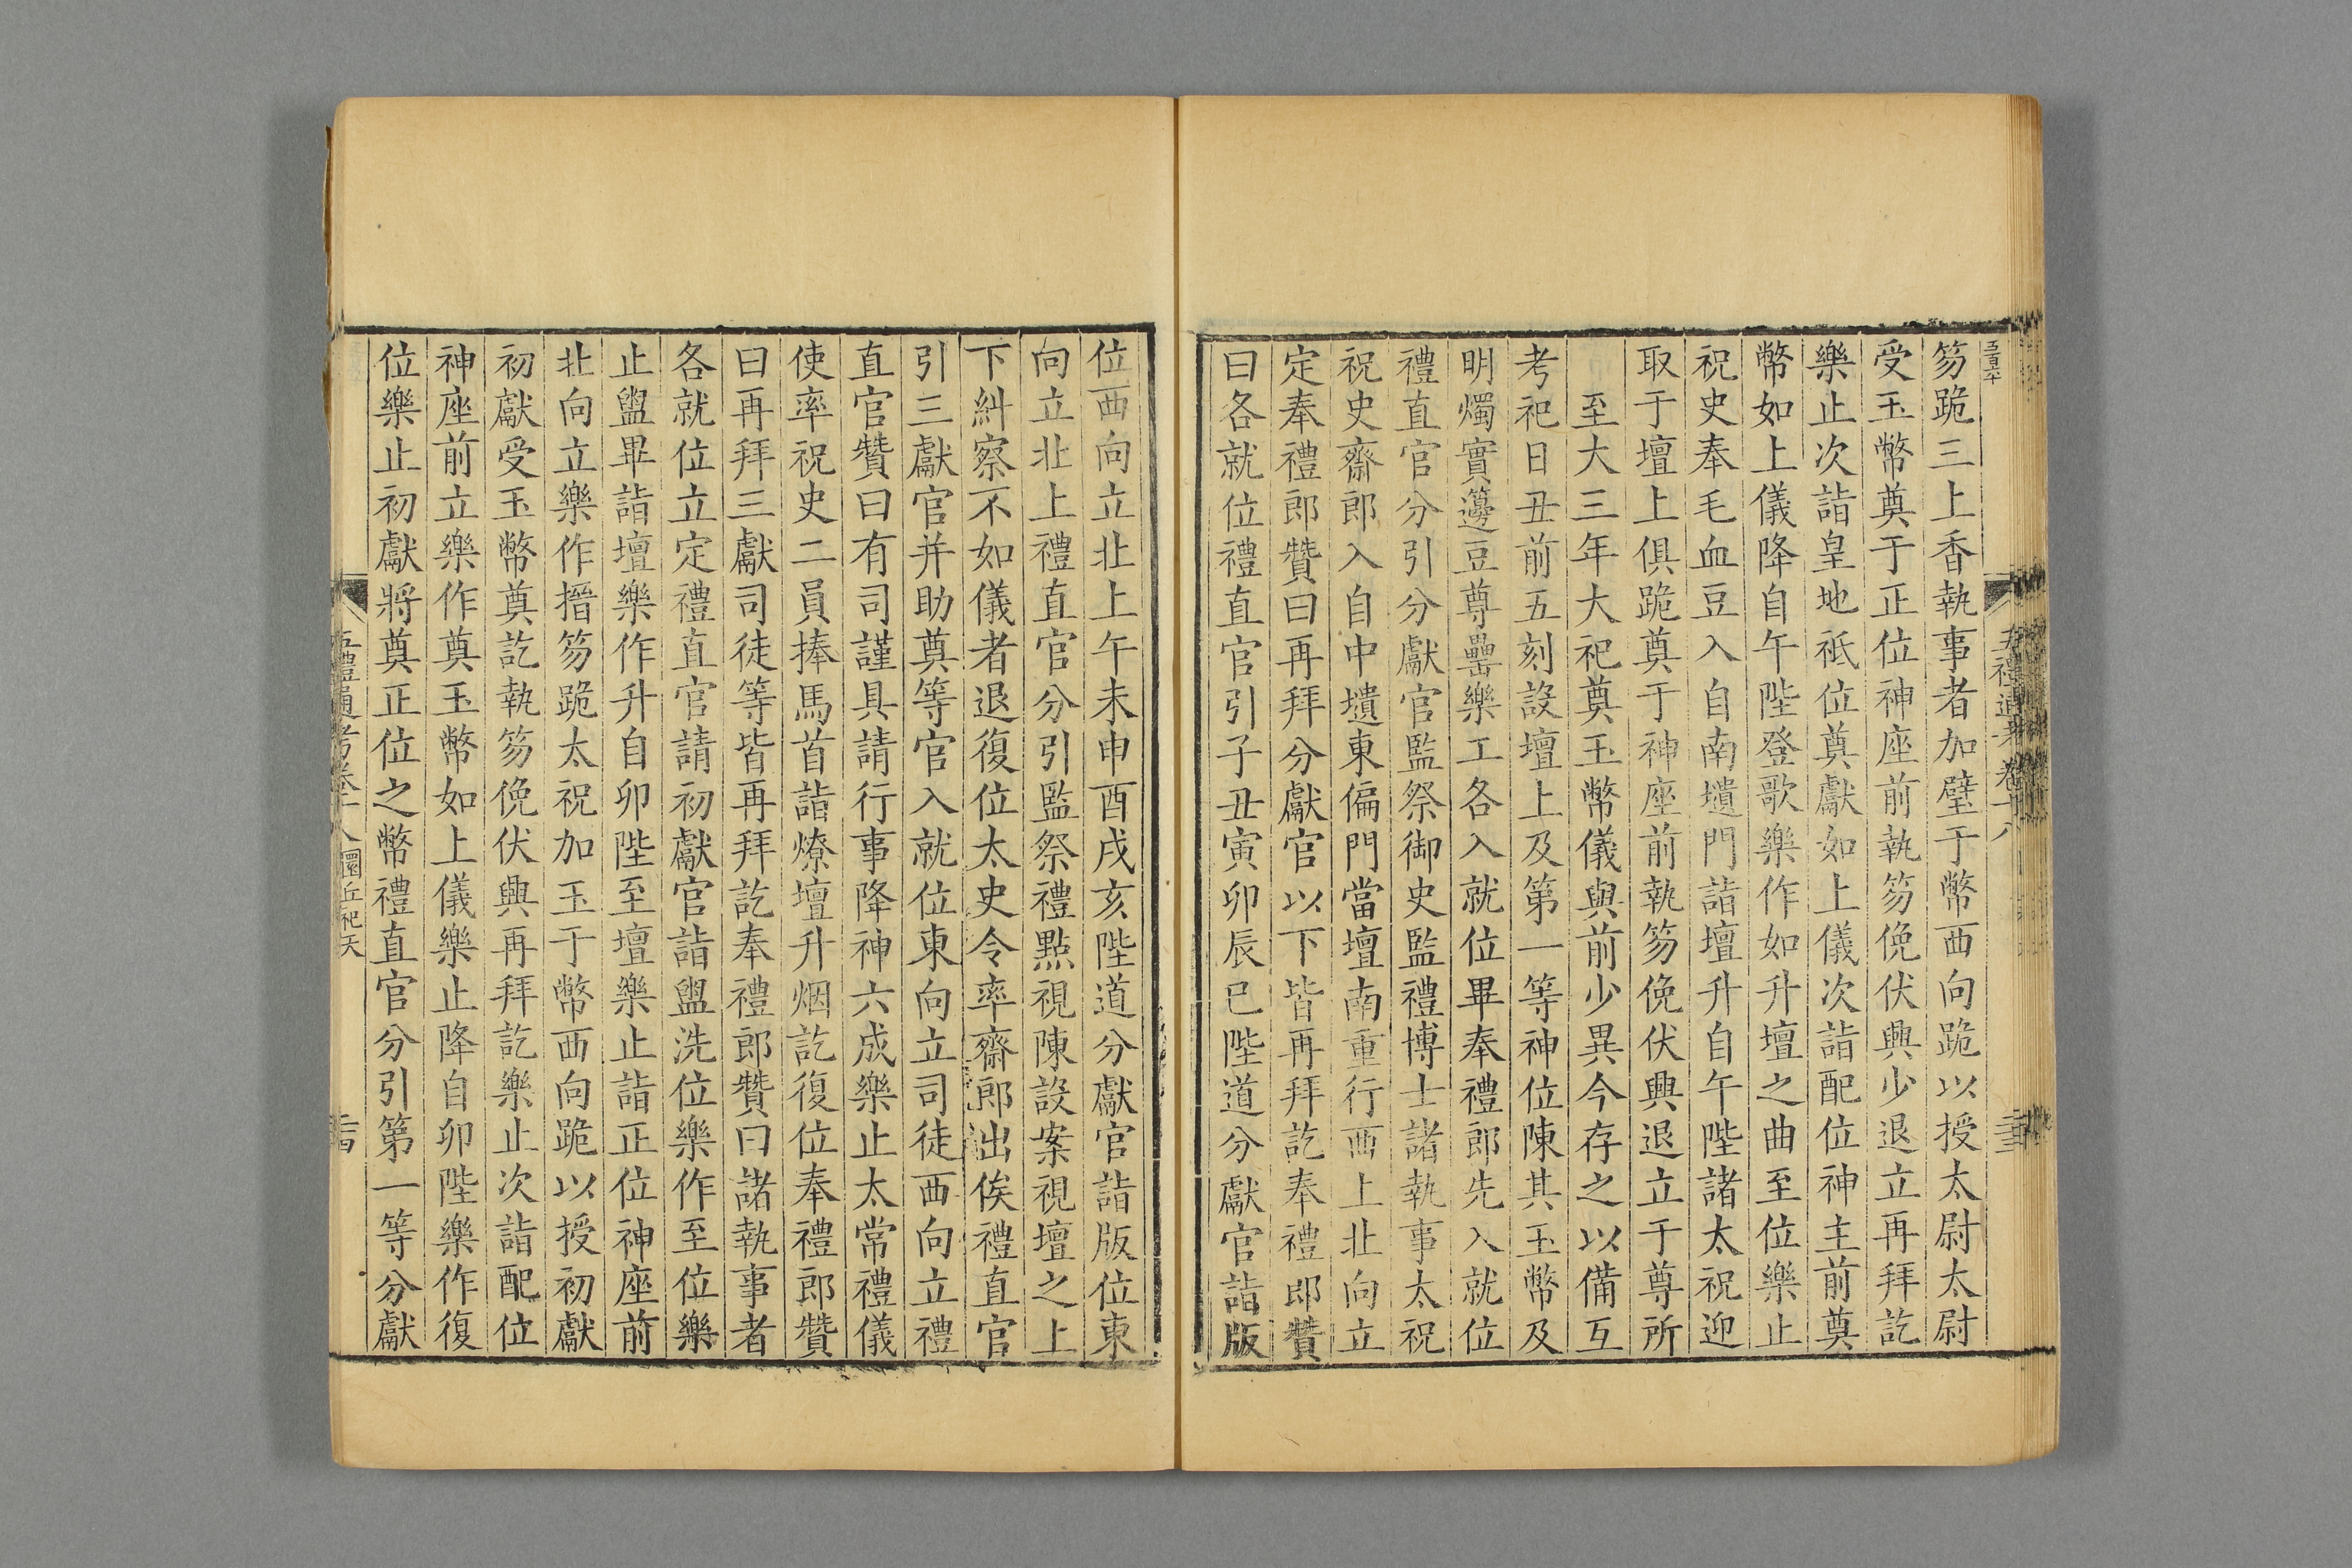 笏跪三上香執事者加璧于幣西向跪以授太尉太尉
受玉幣奠于正位神座前執笏俛伏興少退立再拜訖
樂止次詣皇地祇位奠獻如上儀次詣配位神主前奠
幣如上儀降自午陛登歌樂作如升壇之曲至位樂止
祝史奉毛血豆入自南壝門詣壇升自午陛諸太祝迎
取于壇上俱跪奠于神座前執笏俛伏興退立于尊所
至大三年大祀奠玉幣儀與前少異今存之以備互
考祀日丑前五刻設壇上及第一等神位陳其玉幣及
明燭實籩豆尊罍樂工各入就位畢奉禮郎先入就位
禮直官分引分獻官監祭御史監禮博士諸執事太祝
祝史齋郎入自中壝東偏門當壇南重行西上北向立
定奉禮郎贊曰再拜分獻官以下皆再拜訖奉禮郎贊
曰各就位禮直官引子丑寅卯辰巳陛道分獻官詣版
位西向立北上午未申酉戌亥陛道分獻官詣版位東
向立北上禮直官分引監祭禮點視陳設案視壇之上
下糾察不如儀者退復位太史令率齋郎出俟禮直官
引三獻官并助奠等官入就位東向立司徒西向立禮
直官贊曰有司謹具請行事降神六成樂止太常禮儀
使率祝史二員捧馬首詣燎壇升烟訖復位奉禮郎贊
曰再拜三獻司徒等皆再拜訖奉禮郎贊曰諸執事者
各就位立定禮直官請初獻官詣盥洗位樂作至位樂
止盥畢詣壇樂作升自卯陛至壇樂止詣正位神座前
北向立樂作搢笏跪太祝加玉于幣西向跪以授初獻
初獻受玉幣奠訖執笏俛伏興再拜訖樂止次詣配位
神座前立樂作奠玉幣如上儀樂止降自卯陛樂作復
位樂止初獻將奠正位之幣禮直官分引第一等分獻
五禮通考卷十八 圜丘祀天